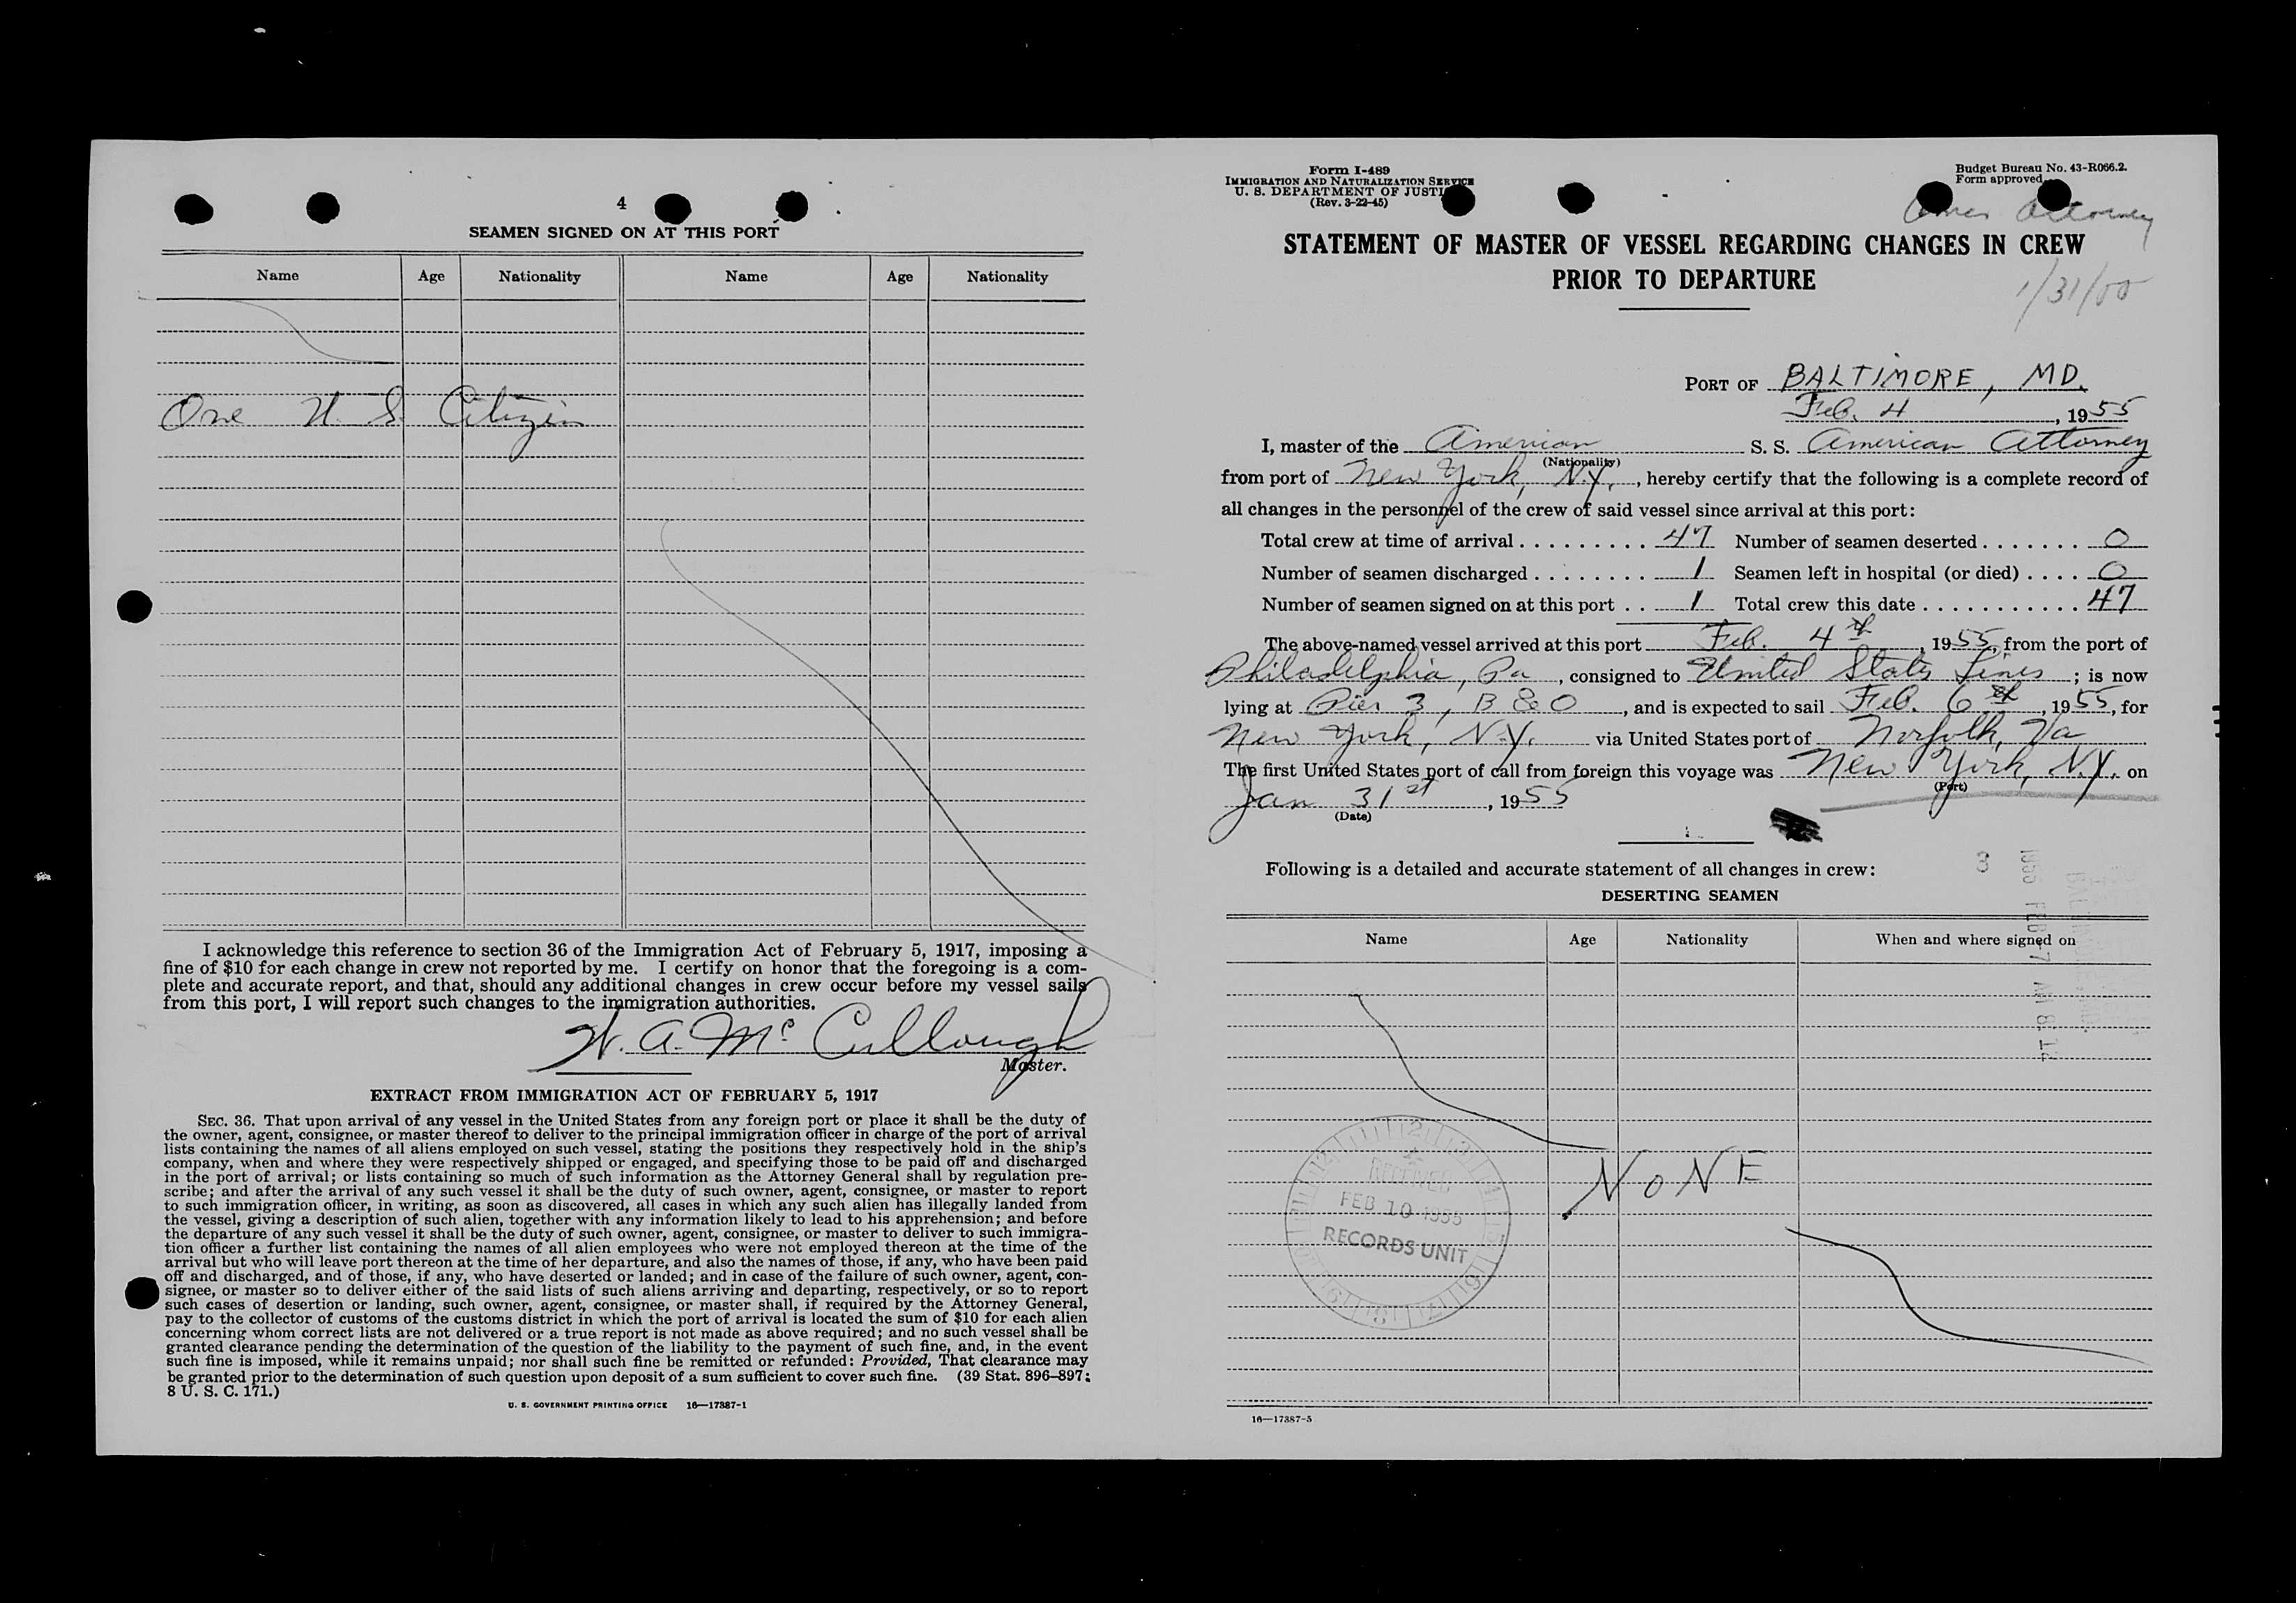 4
SEAMEN SIGNED ON AT THIS PORT
Name Age Nationality Name Age Nationality
One U. S. Citizen
I acknowledge this reference to section 36 of the Immigration Act of February 5, 1917, imposing a
fine of $10 for each change in crew not reported by me. I certify on honor that the foregoing is a com-
plete and accurate report, and that, should any additional changes in crew occur before my vessel sails
from this port, I will report such changes to the immigration authorities.
W. A. McCullough
Master.
EXTRACT FROM IMMIGRATION ACT OF FEBRUARY 5, 1917
SEC. 36. That upon arrival of any vessel in the United States from any foreign port or place it shall be the duty of
the owner, agent, consignee, or master thereof to deliver to the principal immigration officer in charge of the port of arrival
lists containing the names of all aliens employed on such vessel, stating the positions they respectively hold in the ship's
company, when and where they were respectively shipped or engaged, and specifying those to be paid off and discharged
in the port of arrival; or lists containing so much of such information as the Attorney General shall by regulation pre-
scribe; and after the arrival of any such vessel it shall be the duty of such owner, agent, consignee, or master to report
to such immigration officer, in writing, as soon as discovered, all cases in which any such alien has illegally landed from
the vessel, giving a description of such alien, together with any information likely to lead to his apprehension; and before
the departure of any such vessel it shall be the duty of such owner, agent, consignee, or master to deliver to such immigra-
tion officer a further list containing the names of all alien employees who were not employed thereon at the time of the
arrival but who will leave port thereon at the time of her departure, and also the names of those, if any, who have been paid
off and discharged, and of those, if any, who have deserted or landed; and in case of the failure of such owner, agent, con-
signee, or master so to deliver either of the said lists of such aliens arriving and departing, respectively, or so to report
such cases of desertion or landing, such owner, agent, consignee, or master shall, if required by the Attorney General,
pay to the collector of customs of the customs district in which the port of arrival is located the sum of $10 for each alien
concerning whom correct lists are not delivered or a true report is not made as above required; and no such vessel shall be
granted clearance pending the determination of the question of the liability to the payment of such fine, and, in the event
such fine is imposed, while it remains unpaid; nor shall such fine be remitted or refunded: Provided, That clearance may
be granted prior to the determination of such question upon deposit of a sum sufficient to cover such fine. (39 Stat. 896–897;
8 U. S. C. 171.)
U. S. GOVERNMENT PRINTING OFFICE 16—17387-1
Form I-489
IMMIGRATION AND NATURALIZATION SERVICE
U. S. DEPARTMENT OF JUSTI
(Rev. 3-22-45)
Budget Bureau No. 43-R066.2.
Form approved
Amer Attorney
STATEMENT OF MASTER OF VESSEL REGARDING CHANGES IN CREW
PRIOR TO DEPARTURE
1/31/55
PORT OF BALTIMORE, MD.
Feb. 4, 1955
I, master of the American S. S. American Attorney
(Nationality)
from port of New York, N.Y., hereby certify that the following is a complete record of
all changes in the personnel of the crew of said vessel since arrival at this port:
Total crew at time of arrival . . . . . . . . . 47 Number of seamen deserted . . . . . . . 0
Number of seamen discharged . . . . . . . . 1 Seamen left in hospital (or died) . . . . 0
Number of seamen signed on at this port . . 1 Total crew this date . . . . . . . . . . . . 47
The above-named vessel arrived at this port Feb. 4th, 1955, from the port of
Philadelphia, Pa, consigned to United States Lines; is now
lying at Pier 3, B & O, and is expected to sail Feb. 6th, 1955, for
New York, N.Y. via United States port of Norfolk, Va
The first United States port of call from foreign this voyage was New York, N.Y. on
(Port)
Jan 31st, 1955
(Date)
Following is a detailed and accurate statement of all changes in crew:
3
DESERTING SEAMEN
Name Age Nationality When and where signed on
1955 FEB -7 AM 8 12
NONE
RECEIVED
FEB 10 1955
RECORDS UNIT
16—17387-5